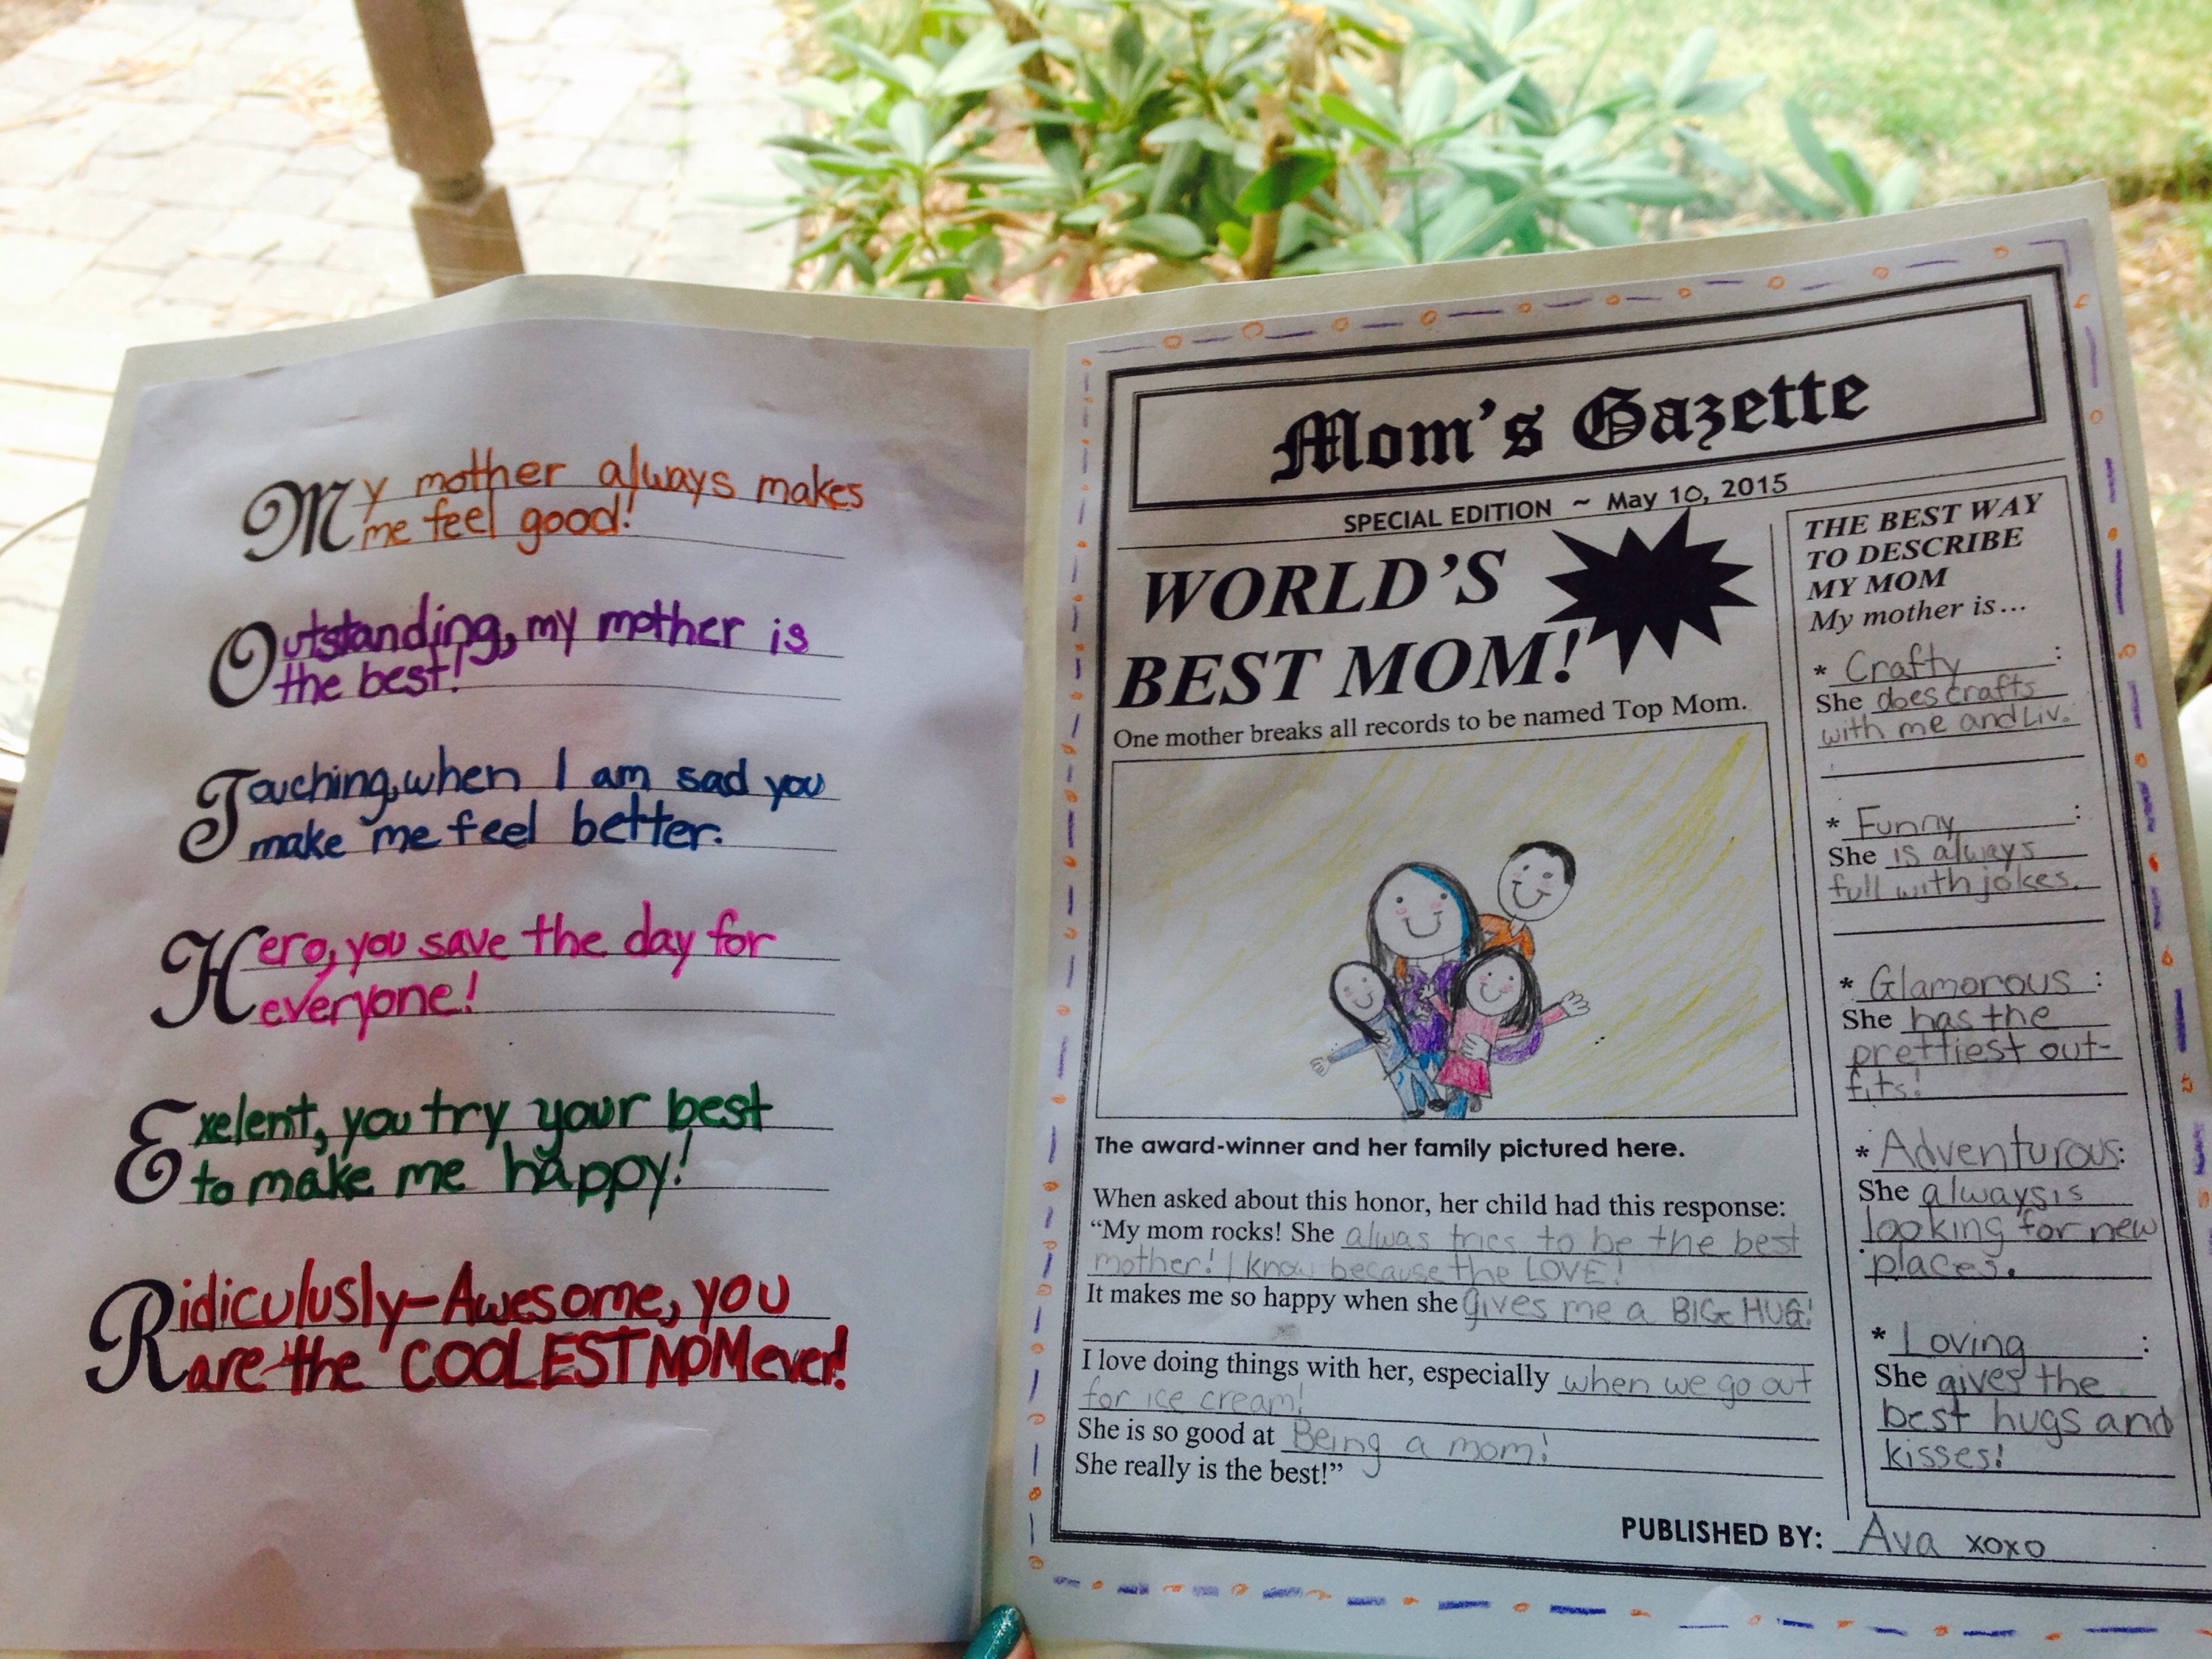 My mother always makes
me feel good!
Outstanding, my mother is
the best!
Touching, when I am sad you
make me feel better.
Hero, you save the day for
everyone!
Exelent, you try your best
to make me happy!
Ridiculusly-Awesome, you
are the COOLEST MOM ever!
Mom's Gazette
SPECIAL EDITION ~ May 10, 2015
WORLD'S
BEST MOM!
One mother breaks all records to be named Top Mom.
The award-winner and her family pictured here.
When asked about this honor, her child had this response:
“My mom rocks! She alwas tries to be the best
mother! I know because the LOVE!
It makes me so happy when she gives me a BIG HUG!
I love doing things with her, especially when we go out
for ice cream!
She is so good at Being a mom!
She really is the best!”
THE BEST WAY
TO DESCRIBE
MY MOM
My mother is...
* Crafty :
She does crafts
with me and Liv.
* Funny :
She is always
full with jokes.
* Glamorous :
She has the
prettiest out-
fits!
* Adventurous:
She always is
looking for new
places.
* Loving :
She gives the
best hugs and
kisses!
PUBLISHED BY: Ava xoxo